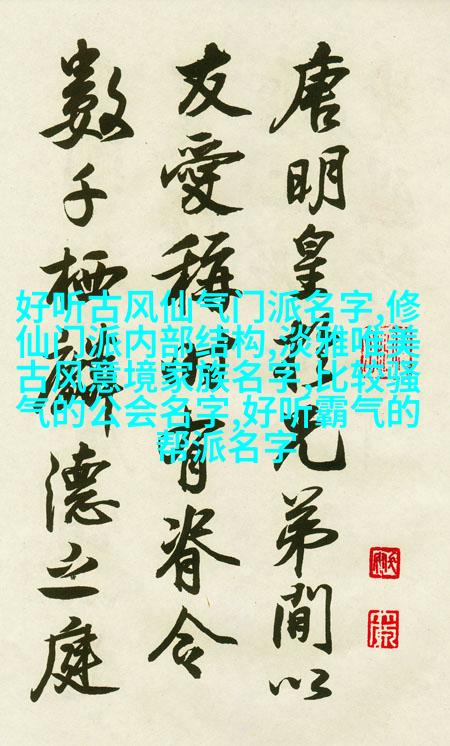 唐明皇兄弟間以
友愛稱有脊令
數千栖麟德之庭
好听古风仙气门派名字,修
仙门派内部结构,淡雅唯美
古风意境家族名字,比较骚
气的公会名字,好听霸气的
帮派名字